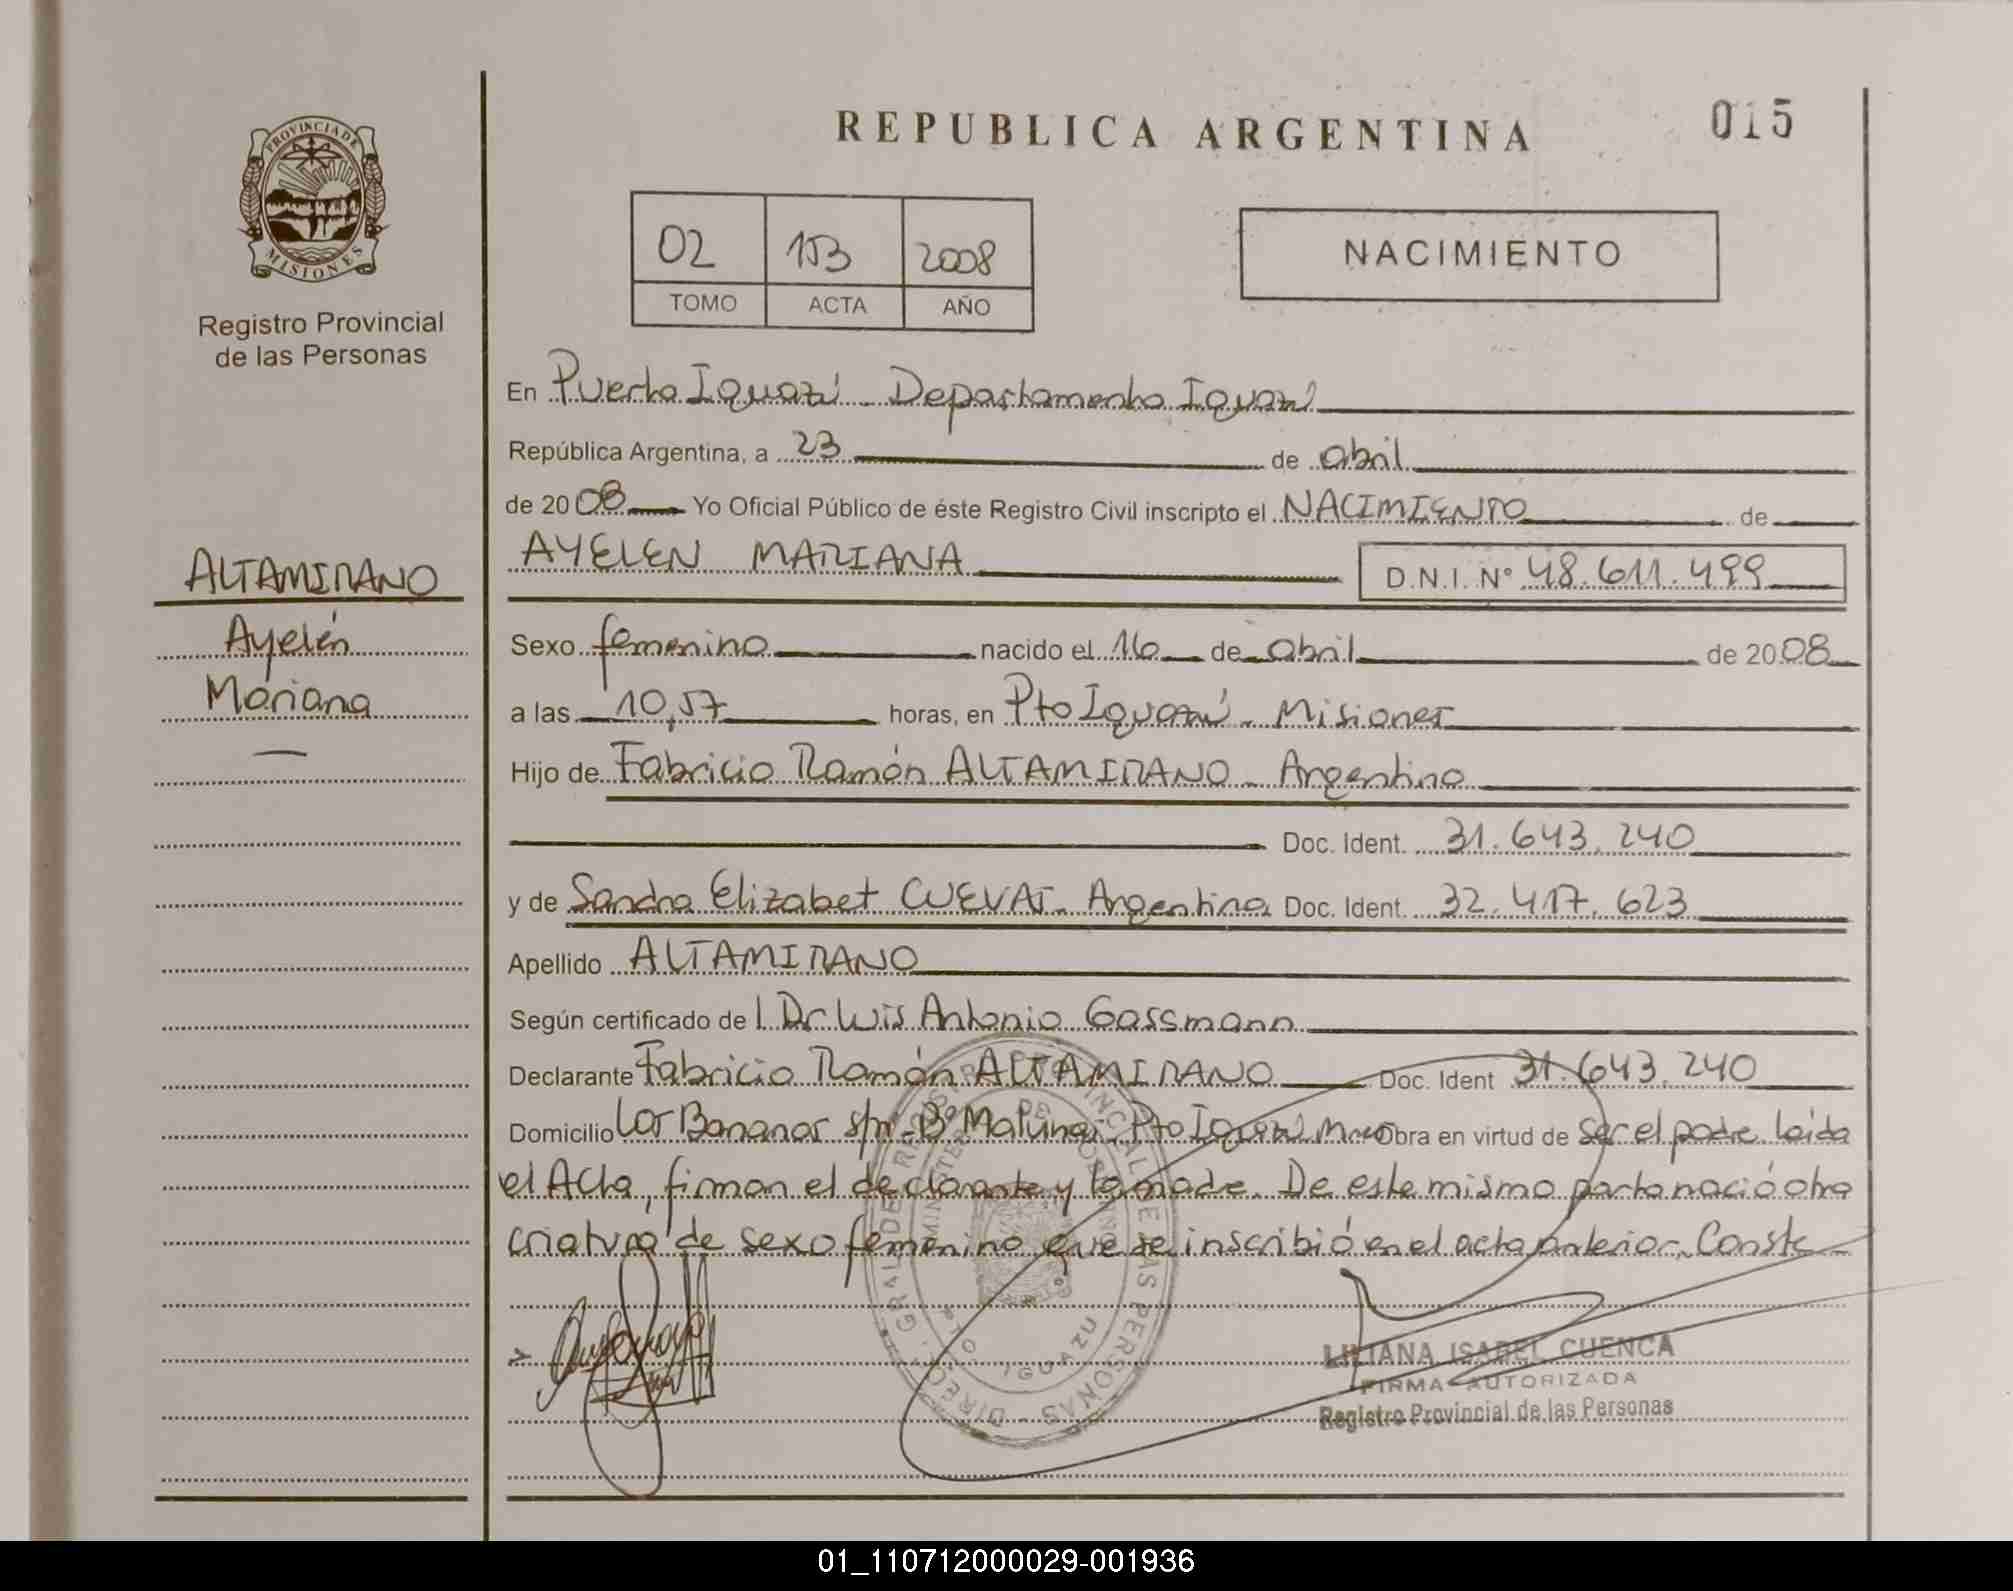 REPUBLICA ARGENTINA
015
PROVINCIA DE
MISIONES
Registro Provincial
de las Personas
02 153 2008
TOMO ACTA AÑO
NACIMIENTO
En Puerto Iguazú - Departamento Iguazú
República Argentina, a 23 de abril
de 2008 Yo Oficial Público de éste Registro Civil inscripto el NACIMIENTO de
AYELEN MARIANA D.N.I. Nº 48.611.499
ALTAMIRANO
Ayelén
Mariana
Sexo femenino nacido el 16 de abril de 2008
a las 10,57 horas, en Pto Iguazú - Misiones
Hijo de Fabricio Ramón ALTAMIRANO - Argentino
Doc. Ident. 31.643.240
y de Sandra Elizabet CUEVAS - Argentina Doc. Ident. 32.417.623
Apellido ALTAMIRANO
Según certificado de l Dr Luis Antonio Gassmann
Declarante Fabricio Ramón ALTAMIRANO Doc. Ident 31.643.240
Domicilio Los Bananos s/nº - Bº Pto Iguazú Obra en virtud de ser el padre leida
el Acta, firman el declarante y la madre. De este mismo parto nació otra
criatura de sexo femenino que se inscribió en el acta anterior. Conste -
DIREC. GRAL DE REGISTRO PROVINCIAL DE LAS PERSONAS
PTO. IGUAZU
LILIANA ISABEL CUENCA
FIRMA AUTORIZADA
Registro Provincial de las Personas
01_110712000029-001936